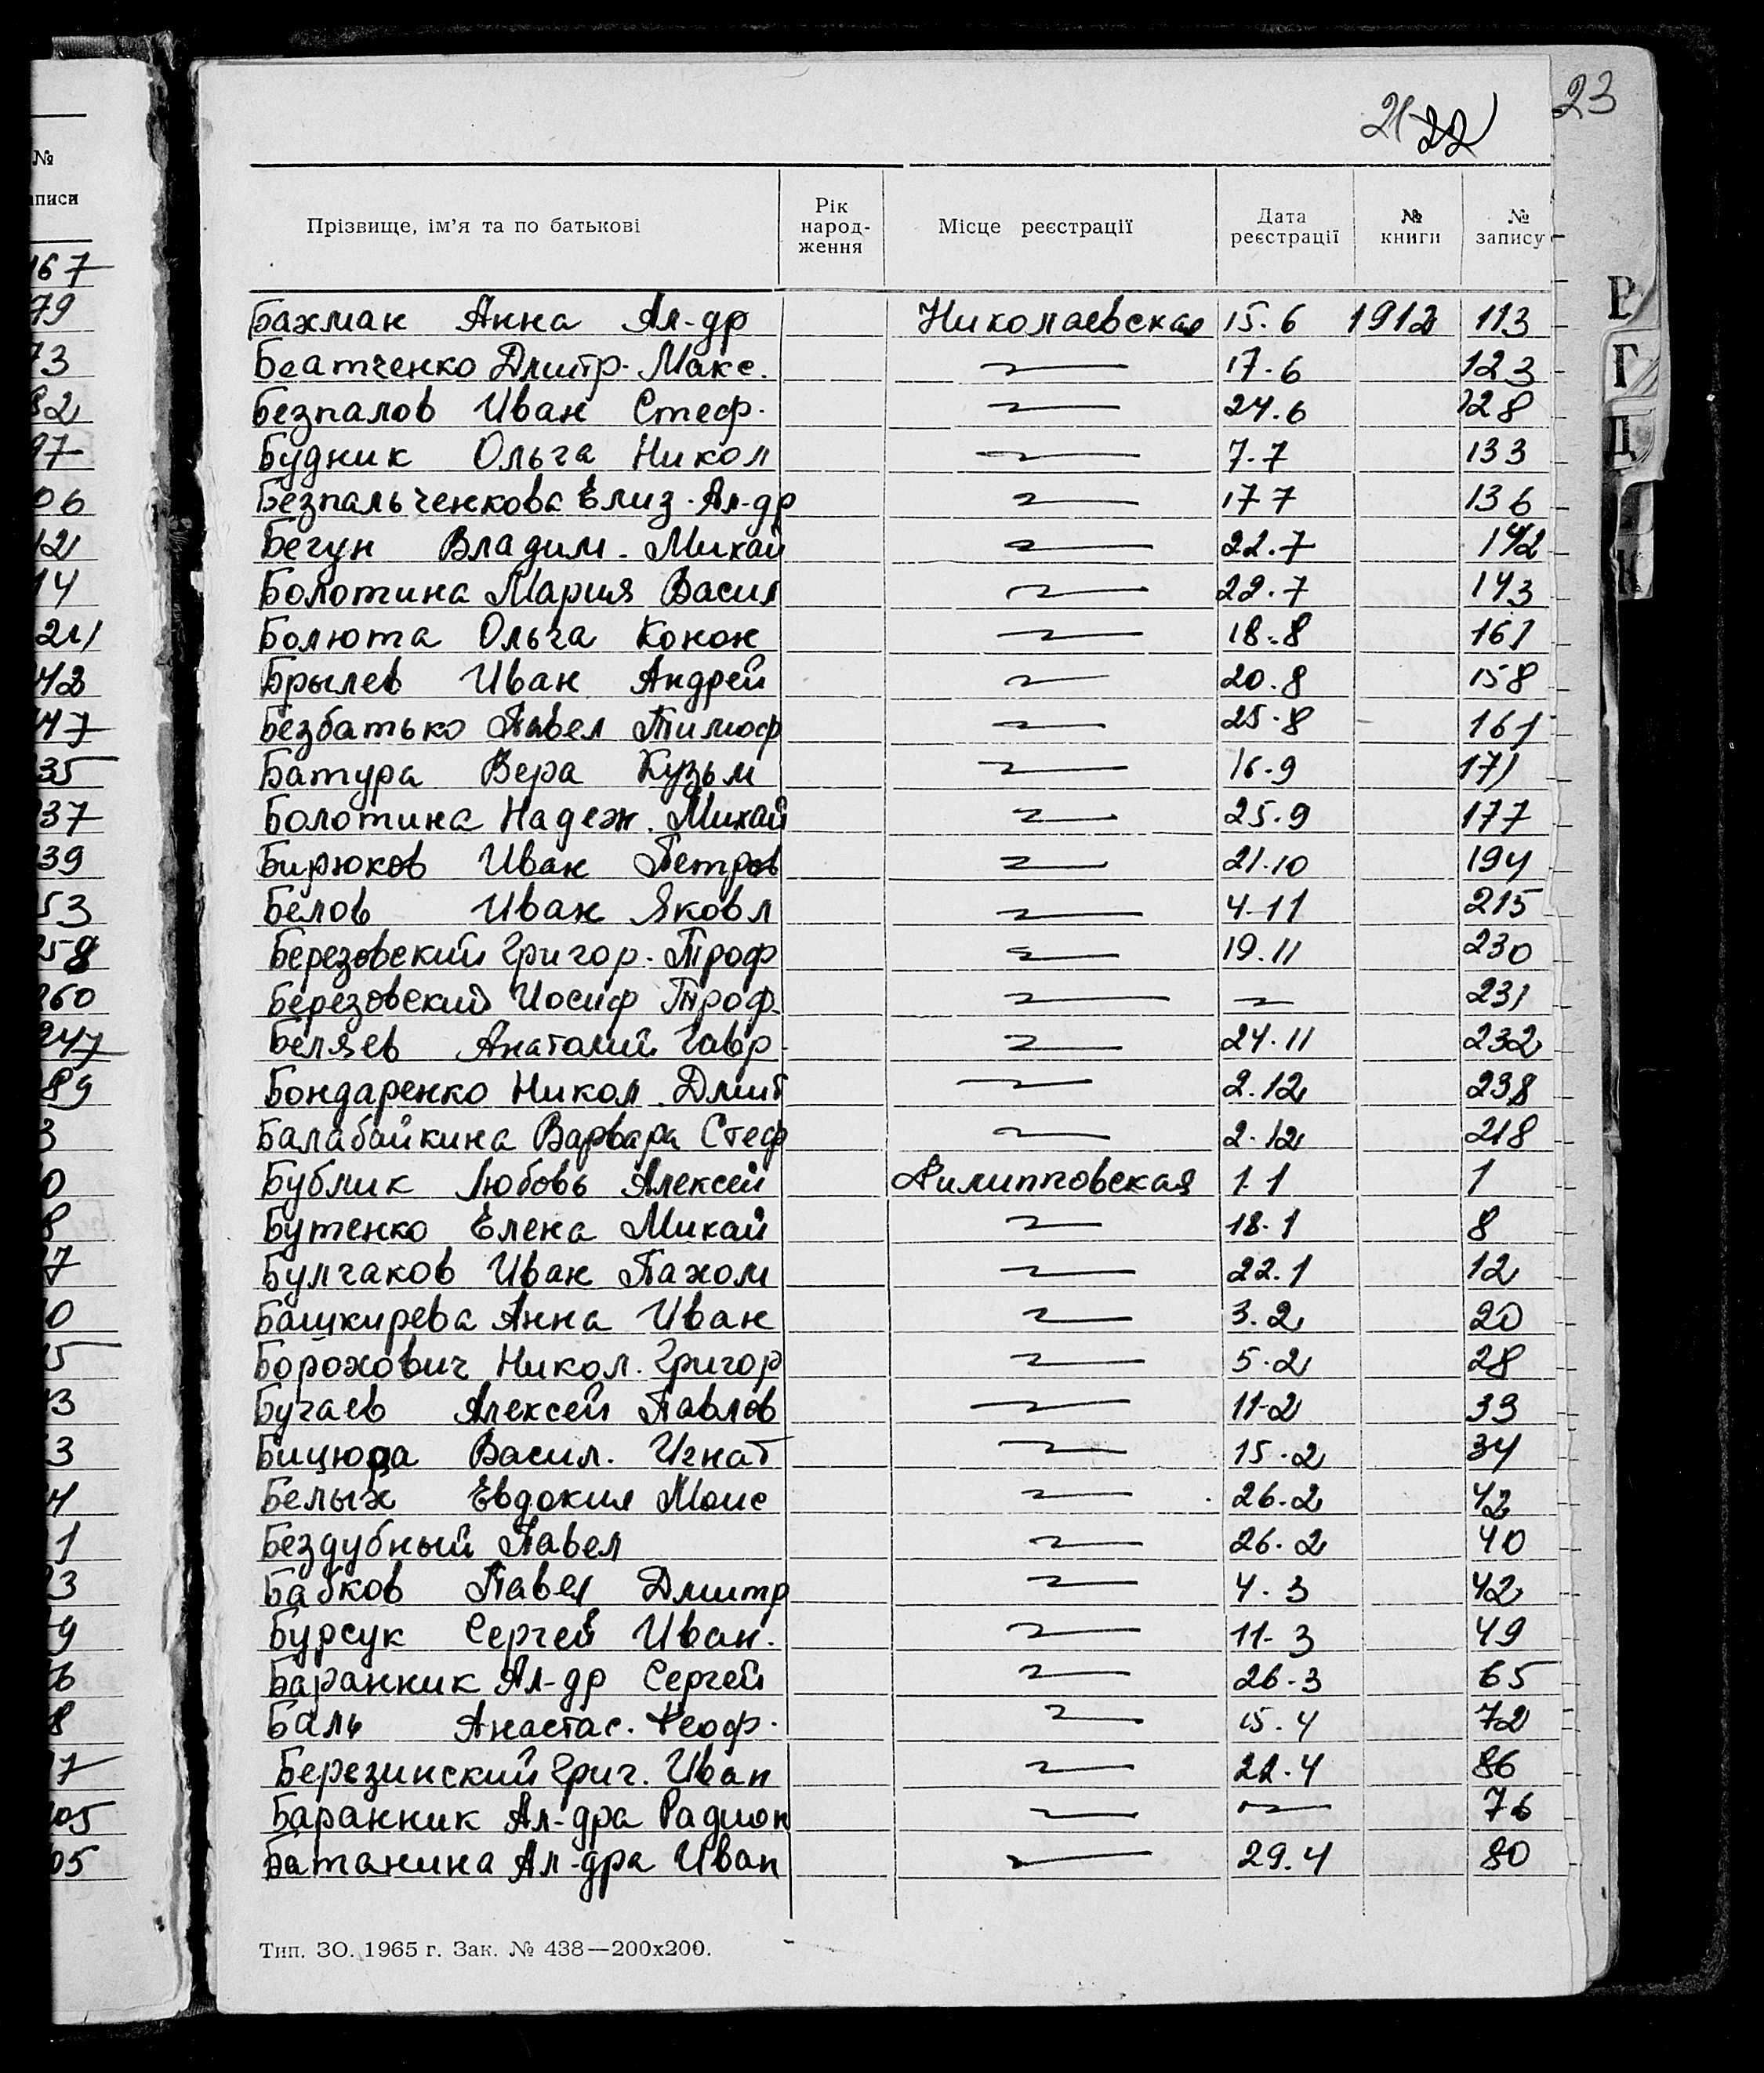 23
21 22
№
аписи
167
79
73
82
97
06
12
14
21
42
47
35
37
39
53
258
260
247
89
3
0
8
7
0
5
3
3
4
1
23
9
6
8
7
105
05
Прізвище, ім'я та по батькові Рік народження Місце реєстрації Дата реєстрації № книги № запису
Бахман Анна Ал-др Николаевская 15.6 1912 113
Беатченко Дмитр. Макс. 17.6 123
Безпалов Иван Стеф. 24.6 128
Будник Ольга Никол 7.7 133
Безпальченкова Елиз. Ал-др 17 7 136
Бегун Владим. Михай 22.7 142
Болотина Мария Васил 22.7 143
Болюта Ольга Конон 18.8 161
Брылев Иван Андрей 20.8 158
Безбатько Павел Тимоф 25.8 161
Батура Вера Кузьм 16.9 171
Болотина Надеж. Михай 25.9 177
Бирюков Иван Петров 21.10 194
Белов Иван Яковл 4-11 215
Березовский Григор. Троф 19.11 230
Березовский Иосиф Троф. 231
Беляев Анатолий Гавр. 24.11 232
Бондаренко Никол. Дмит 2.12 238
Балабайкина Варвара Стеф 2.12 218
Бублик Любовь Алексей Филипповская 1.1 1
Бутенко Елена Михай 18.1 8
Булгаков Иван Пахом 22.1 12
Башкирева Анна Иван 3.2 20
Борохович Никол. Григор 5.2 28
Бугаев Алексей Павлов 11-2 33
Бицюра Васил. Игнат 15.2 34
Белых Евдокия Моис 26.2 42
Бездубный Павел 26.2 40
Бабков Павел Дмитр 4.3 42
Бурсук Сергей Иван. 11-3 49
Баранник Ал-др Сергей 26-3 65
Баль Анастас. Феоф. 15.4 72
Березинский Григ. Иван 22.4 86
Баранник Ал-дра Радион 76
Батанина Ал-дра Иван 29.4 80
Тип. ЗО. 1965 г. Зак. № 438—200х200.
В
Г
Д
К